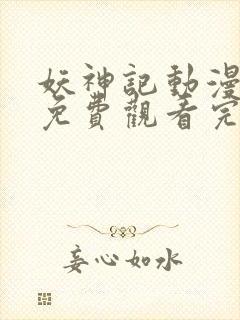 妖神記動漫
免費觀看完
妄心如水